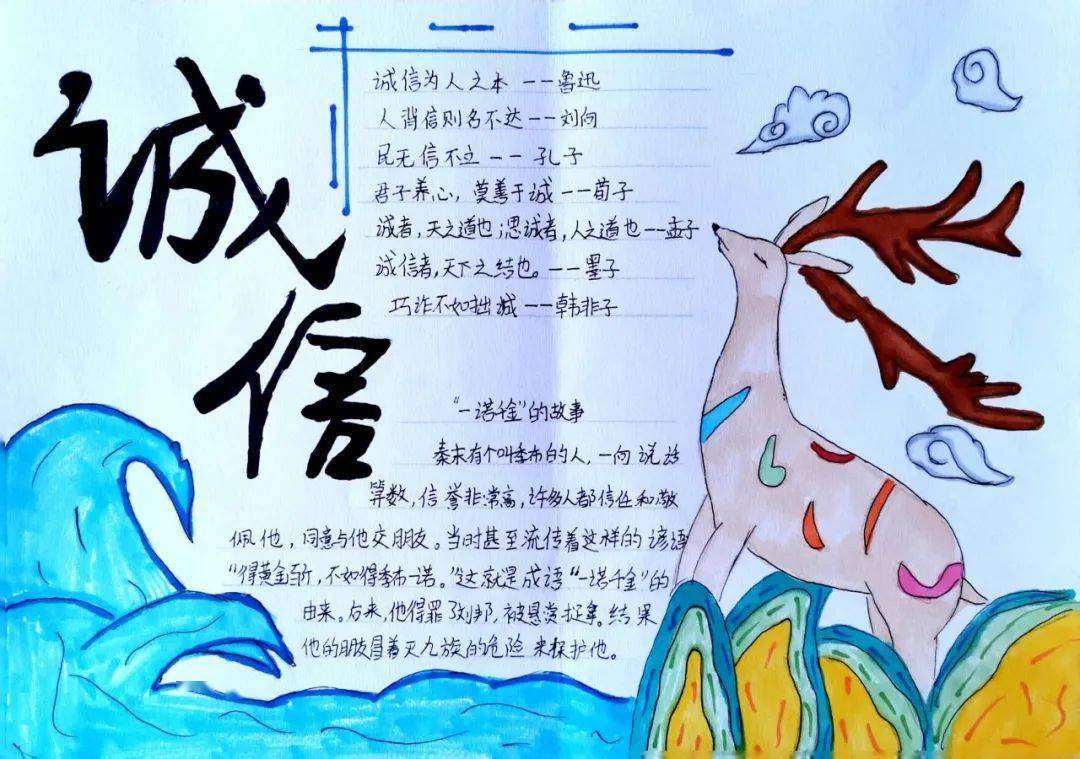 诚信
诚信为人之本 ——鲁迅
人背信则名不达——刘向
民无信不立——孔子
君子养心，莫善于诚——荀子
诚者，天之道也；思诚者，人之道也——孟子
诚信者，天下之结也。——墨子
巧诈不如拙诚——韩非子
“一诺千金”的故事
秦末有个叫季布的人，一向说话
算数，信誉非常高，许多人都信任和敬
佩他，同意与他交朋友。当时甚至流传着这样的谚语
“得黄金百斤，不如得季布一诺。”这就是成语“一诺千金”的
由来。后来，他得罪了刘邦，被悬赏捉拿。结果
他的朋友冒着灭九族的危险来保护他。